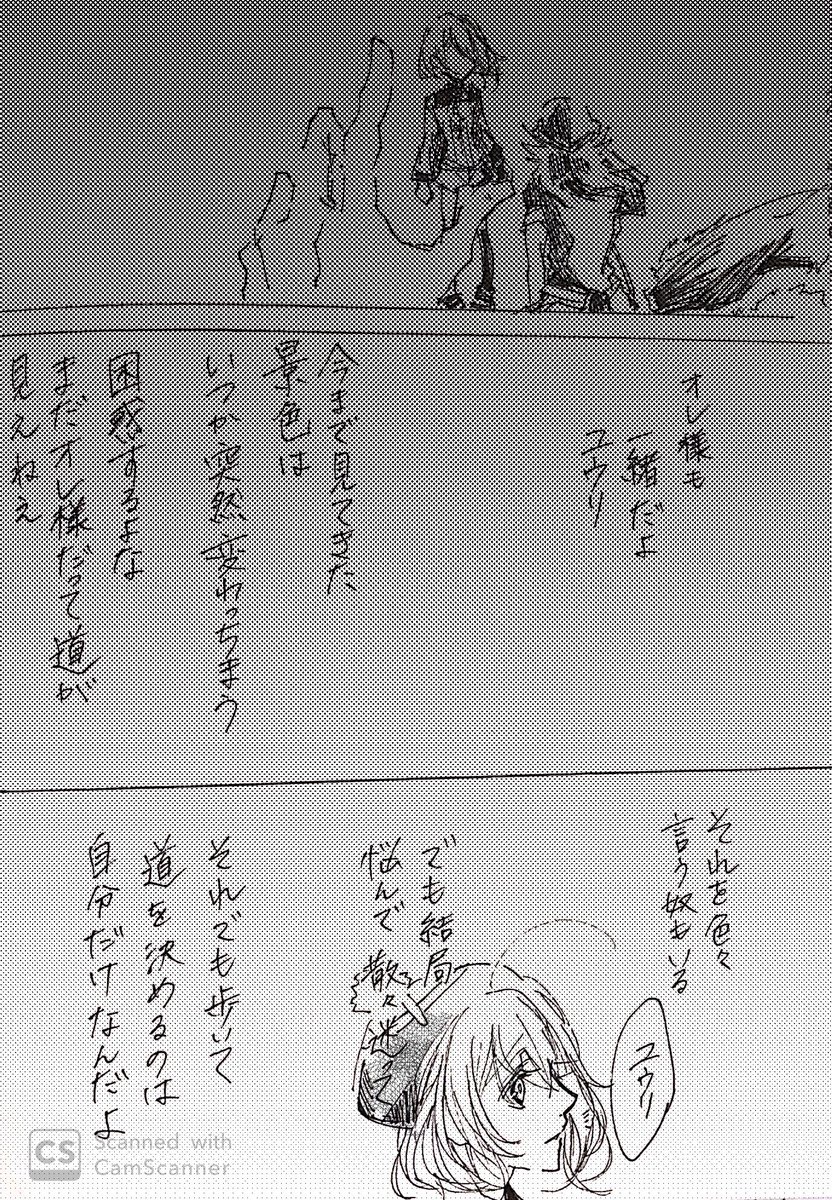 オレ様も
一緒だよ
ユウリ
今まで見てきた
景色は
いつか突然変わっちまう
困惑するよな
まだオレ様だって道が
見えねえ
それを色々
言う奴もいる
ユウリ
でも結局
悩んで散々迷って
それでも歩いて
道を決めるのは
自分だけなんだよ
CS Scanned with
CamScanner